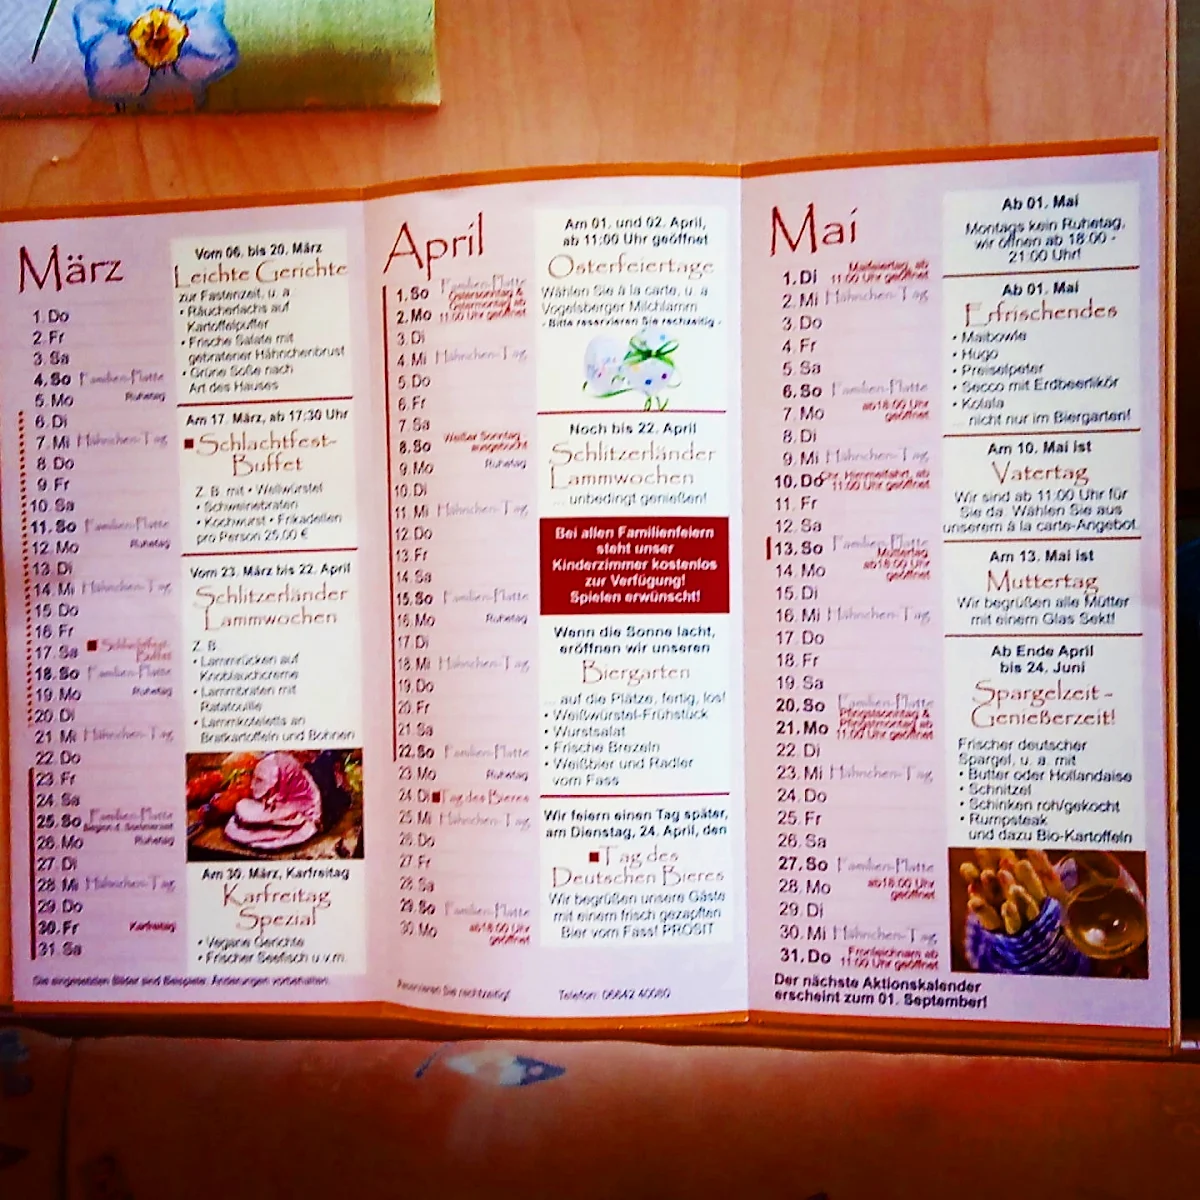 März
1. Do
2. Fr
3. Sa
4. So Familien-Platte
5. Mo Ruhetag
6. Di
7. Mi Hähnchen-Tag
8. Do
9. Fr
10. Sa
11. So Familien-Platte
12. Mo Ruhetag
13. Di
14. Mi Hähnchen-Tag
15. Do
16. Fr
17. Sa Schlachtfest-
Buffet
18. So Familien-Platte
19. Mo Ruhetag
20. Di
21. Mi Hähnchen-Tag
22. Do
23. Fr
24. Sa
25. So Familien-Platte
Beginn d. Sommerzeit
26. Mo Ruhetag
27. Di
28. Mi Hähnchen-Tag
29. Do
30. Fr Karfreitag
31. Sa
Vom 06. bis 20. März
Leichte Gerichte
zur Fastenzeit, u. a.
• Räucherlachs auf
Kartoffelpuffer
• Frische Salate mit
gebratener Hähnchenbrust
• Grüne Soße nach
Art des Hauses
Am 17. März, ab 17:30 Uhr
Schlachtfest-
Buffet
Z. B. mit • Wellwürstel
• Schweinebraten
• Kochwurst • Frikadellen
pro Person 25,00 €
Vom 23. März bis 22. April
Schlitzerländer
Lammwochen
Z. B.
• Lammrücken auf
Knoblauchcreme
• Lammbraten mit
Ratatouille
• Lammkoteletts an
Bratkartoffeln und Bohnen
Am 30. März, Karfreitag
Karfreitag
Spezial
• Vegane Gerichte
• Frischer Seefisch u.v.m.
Die eingesetzten Bilder sind Beispiele. Änderungen vorbehalten.
April
1. So Familien-Platte
Ostersonntag &
Ostermontag ab
2. Mo 11:00 Uhr geöffnet
3. Di
4. Mi Hähnchen-Tag
5. Do
6. Fr
7. Sa
8. So Weißer Sonntag
ausgebucht
9. Mo Ruhetag
10. Di
11. Mi Hähnchen-Tag
12. Do
13. Fr
14. Sa
15. So Familien-Platte
16. Mo Ruhetag
17. Di
18. Mi Hähnchen-Tag
19. Do
20. Fr
21. Sa
22. So Familien-Platte
23. Mo Ruhetag
24. Di Tag des Bieres
25. Mi Hähnchen-Tag
26. Do
27. Fr
28. Sa
29. So Familien-Platte
30. Mo ab18:00 Uhr
geöffnet
Reservieren Sie rechtzeitig!
Am 01. und 02. April,
ab 11:00 Uhr geöffnet
Osterfeiertage
Wählen Sie à la carte, u. a.
Vogelsberger Milchlamm
- Bitte reservieren Sie rechzeitig -
Noch bis 22. April
Schlitzerländer
Lammwochen
... unbedingt genießen!
Bei allen Familienfeiern
steht unser
Kinderzimmer kostenlos
zur Verfügung!
Spielen erwünscht!
Wenn die Sonne lacht,
eröffnen wir unseren
Biergarten
... auf die Plätze, fertig, los!
• Weißwürstel-Frühstück
• Wurstsalat
• Frische Brezeln
• Weißbier und Radler
vom Fass
Wir feiern einen Tag später,
am Dienstag, 24. April, den
Tag des
Deutschen Bieres
Wir begrüßen unsere Gäste
mit einem frisch gezapften
Bier vom Fass! PROSIT
Telefon: 06642 40080
Mai
1. Di Maifeiertag, ab
11:00 Uhr geöffnet
2. Mi Hähnchen-Tag
3. Do
4. Fr
5. Sa
6. So Familien-Platte
7. Mo ab18:00 Uhr
geöffnet
8. Di
9. Mi Hähnchen-Tag
10. Do Chr. Himmelfahrt, ab
11:00 Uhr geöffnet
11. Fr
12. Sa
13. So Familien-Platte
Muttertag
14. Mo ab18:00 Uhr
geöffnet
15. Di
16. Mi Hähnchen-Tag
17. Do
18. Fr
19. Sa
20. So Familien-Platte
Pfingstsonntag &
21. Mo Pfingstmontag ab
11:00 Uhr geöffnet
22. Di
23. Mi Hähnchen-Tag
24. Do
25. Fr
26. Sa
27. So Familien-Platte
28. Mo ab18:00 Uhr
geöffnet
29. Di
30. Mi Hähnchen-Tag
31. Do Fronleichnam ab
11:00 Uhr geöffnet
Der nächste Aktionskalender
erscheint zum 01. September!
Ab 01. Mai
Montags kein Ruhetag,
wir öffnen ab 18:00 -
21:00 Uhr!
Ab 01. Mai
Erfrischendes
• Maibowle
• Hugo
• Preiselpeter
• Secco mit Erdbeerlikör
• Kolala
... nicht nur im Biergarten!
Am 10. Mai ist
Vatertag
Wir sind ab 11:00 Uhr für
Sie da. Wählen Sie aus
unserem à la carte-Angebot.
Am 13. Mai ist
Muttertag
Wir begrüßen alle Mütter
mit einem Glas Sekt!
Ab Ende April
bis 24. Juni
Spargelzeit -
Genießerzeit!
Frischer deutscher
Spargel, u. a. mit
• Butter oder Hollandaise
• Schnitzel
• Schinken roh/gekocht
• Rumpsteak
und dazu Bio-Kartoffeln